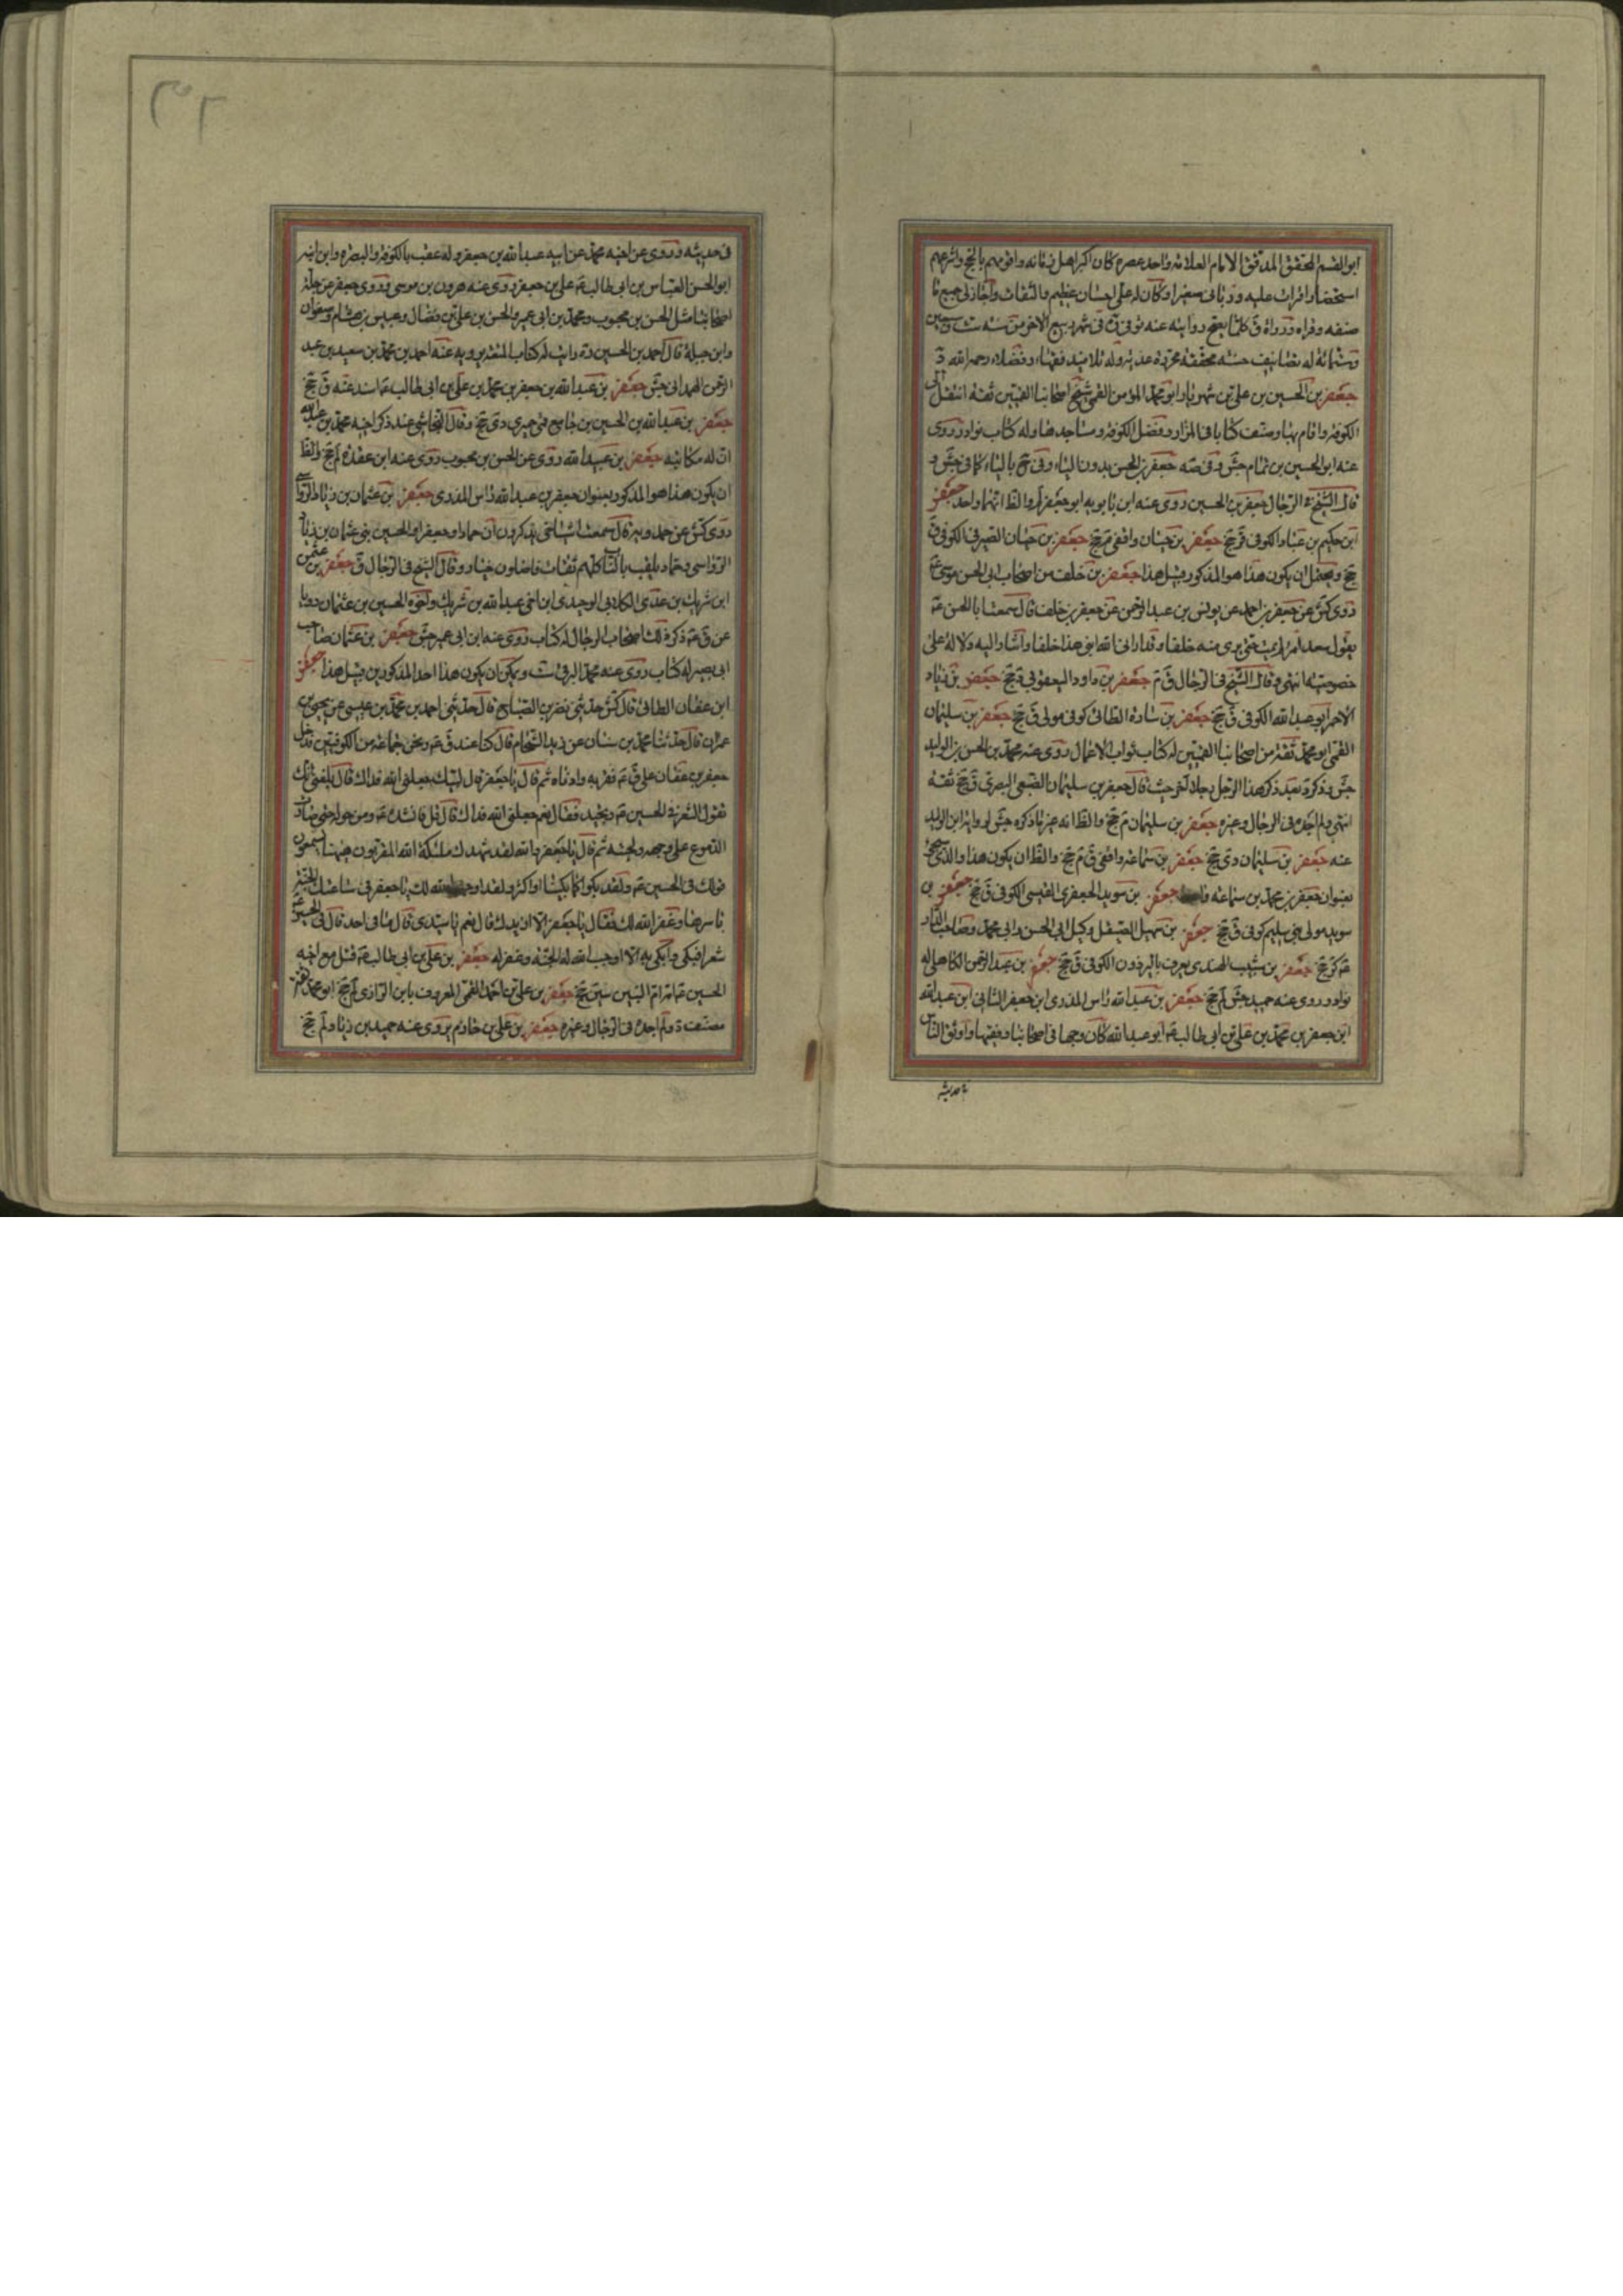 ابو القسم المحقق المدقق الامام العلامة واحد عصره كان اكبر اهل زمانه واقومهم بالحجج واسرعهم
استحضارا قرات عليه ورباني صغيرا وكان له علي احسان عظيم والتفات واجاز لي جميع ما
صنفه وقراه ورواه وكلما يصح روايته عنه توفى في شهر ربيع الآخر من سنة ست وسبعين
وستمائة له تصانيف حسنة محققة محررة عذبة وله تلاميذ فقهاء وفضلاء رحمه الله د
جعفر بن الحسين بن علي بن شهريار ابو محمد المؤمن القمي شيخ اصحابنا القميين ثقة انتقل الى
الكوفة واقام بها وصنف كتابا في المزار وفضل الكوفة ومساجدها وله كتاب نوادر روى
عنه ابو الحسين بن تمام جش وفي صه جعفر بن الحسن بدون الياء وفي جخ بالياء كما في جش و
قال الشيخ في الرجال جعفر بن الحسين روى عنه ابن بابويه ابو جعفر لم والظ انهما واحد جعفر
ابن حكيم بن عباد الكوفي ق جخ جعفر بن حيان واقفي م جخ جعفر بن حيان الصيرفي الكوفي ق
جخ ويحتمل ان يكون هذا هو المذكور قبيل هذا جعفر بن خلف من اصحاب ابي الحسن موسى ع
روى كش عن جعفر بن احمد عن يونس بن عبد الرحمن عن جعفر بن خلف قال سمعت ابا الحسن ع
يقول سعد امرؤ لم يمت حتى يرى منه خلفا وقد اراني الله ابني هذا خلفا واشار اليه دلالة على
خصوصيته انتهى وقال الشيخ في الرجال ق م جعفر بن داود اليعقوبي د جخ جعفر بن زياد
الاحمر ابو عبد الله الكوفي ق جخ جعفر بن سارة الطائي كوفي مولى ق جخ جعفر بن سليمان
القمي ابو محمد ثقة من اصحابنا القميين له كتاب ثواب الاعمال روى عنه محمد بن الحسن بن الوليد
جش وذكر بعد ذكر هذا الرجل رجلا آخر حيث قال جعفر بن سليمان الضبعي البصري ق جخ ثقة
انتهى ولم اجده في الرجال وغيره جعفر بن سليمان م جخ والظ انه غير ما ذكره جش لرواية ابن الوليد
عنه جعفر بن سليمان دي جخ جعفر بن سماعة واقفي ق م جخ والظ ان يكون هذا والذي سيجئ
بعنوان جعفر بن محمد بن سماعة واحدا جعفر بن سويد الجعفري القيسي الكوفي ق جخ جعفر بن
سويد مولى بني سليم كوفي ق جخ جعفر بن سهيل الصيقل وكيل ابي الحسن وابي محمد وصاحب الدار
ع كر جخ جعفر بن شبيب الهندي يعرف بالبرذون الكوفي ق جخ جعفر بن عبد الرحمن الكاهلي له
نوادر روى عنه حميد جش لم جخ جعفر بن عبد الله راس المذري ابن جعفر الثاني ابن عبد الله
ابن جعفر بن محمد بن علي بن ابي طالب ع ابو عبد الله كان وجها في اصحابنا وفقيها واوثق الناس
في حديثه وروى عن اخيه محمد عن ابيه عبد الله بن جعفر وله عقب بالكوفة والبصرة وابن ابنه
ابو الحسن العباس بن ابي طالب ع علي بن جعفر روى عنه هرون بن موسى وروى جعفر عن جلة
اصحابنا مثل الحسن بن محبوب ومحمد بن ابي عمير والحسن بن علي بن فضال وعبيس بن هشام وصفوان
وابن جبلة قال احمد بن الحسين ره رايت له كتاب المتعة يرويه عنه احمد بن محمد بن سعيد بن عبد
الرحمن الهمداني جش جعفر بن عبد الله بن جعفر بن محمد بن علي بن ابي طالب ع اسند عنه ق جخ
جعفر بن عبد الله بن الحسين بن جامع قمي حميري دي جخ وقال النجاشي عند ذكر اخيه محمد بن عبد الله
ان له مكاتبة جعفر بن عبيد الله روى عن الحسن بن محبوب روى عنه ابن عقدة لم جخ والظ
ان يكون هذا هو المذكور بعنوان جعفر بن عبد الله راس المذري جعفر بن عثمان بن زياد الرواسي
روى كش عن حمدويه قال سمعت اشياخي يذكرون ان حمادا وجعفرا والحسين بني عثمان بن زياد
الرواسي وحماد يلقب بالناب كلهم ثقات فاضلون خيار وقال الشيخ في الرجال ق جعفر بن عثمن
ابن شريك بن عدي الكلابي الوحيدي ابن اخي عبد الله بن شريك واخوه الحسين بن عثمان رويا
عن ق ع ذكره ذلك اصحاب الرجال له كتاب روى عنه ابن ابي عمير جش جعفر بن عثمان صاحب
ابي بصير له كتاب روى عنه محمد البرقي ست ويمكن ان يكون هذا احد المذكورين قبيل هذا جعفر
ابن عفان الطائي قال كش حدثني نصر بن الصباح قال حدثني احمد بن محمد بن عيسى عن يحيى بن
عمران قال حدثنا محمد بن سنان عن زيد الشحام قال كنا عند ق ع ونحن جماعة من الكوفيين فدخل
جعفر بن عفان على ق ع فقربه وادناه ثم قال يا جعفر قال لبيك جعلني الله فداك قال بلغني انك
تقول الشعر في الحسين ع وتجيد فقال نعم جعلني الله فداك قال قل فانشده ع ومن حوله حتى صارت
الدموع على وجهه ولحيته ثم قال يا جعفر والله لقد شهدك ملئكة الله المقربون ههنا يسمعون
قولك في الحسين ع ولقد بكوا كما بكينا او اكثر ولقد اوجب الله لك يا جعفر في ساعتك الجنة
باسرها وغفر الله لك فقال يا جعفر الا ازيدك قال نعم يا سيدي قال ما من احد قال في الحسين ع
شعرا فبكى وابكى به الا اوجب الله له الجنة وغفر له جعفر بن علي بن ابي طالب ع قتل مع اخيه
الحسين ع امه ام البنين سين جخ جعفر بن علي بن احمد القمي المعروف بابن الرازي لم جخ ابو محمد ثقة
مصنف د ولم اجده في الرجال وغيره جعفر بن علي بن خادم يروى عنه حميد بن زياد لم جخ